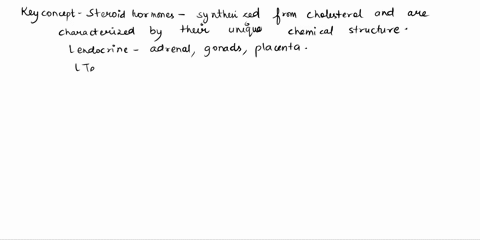 Key concept - Steroid hormones - synthesized from cholesterol and are
characterized by their unique chemical structure.
L endocrine - adrenal, gonads, placenta.
L To